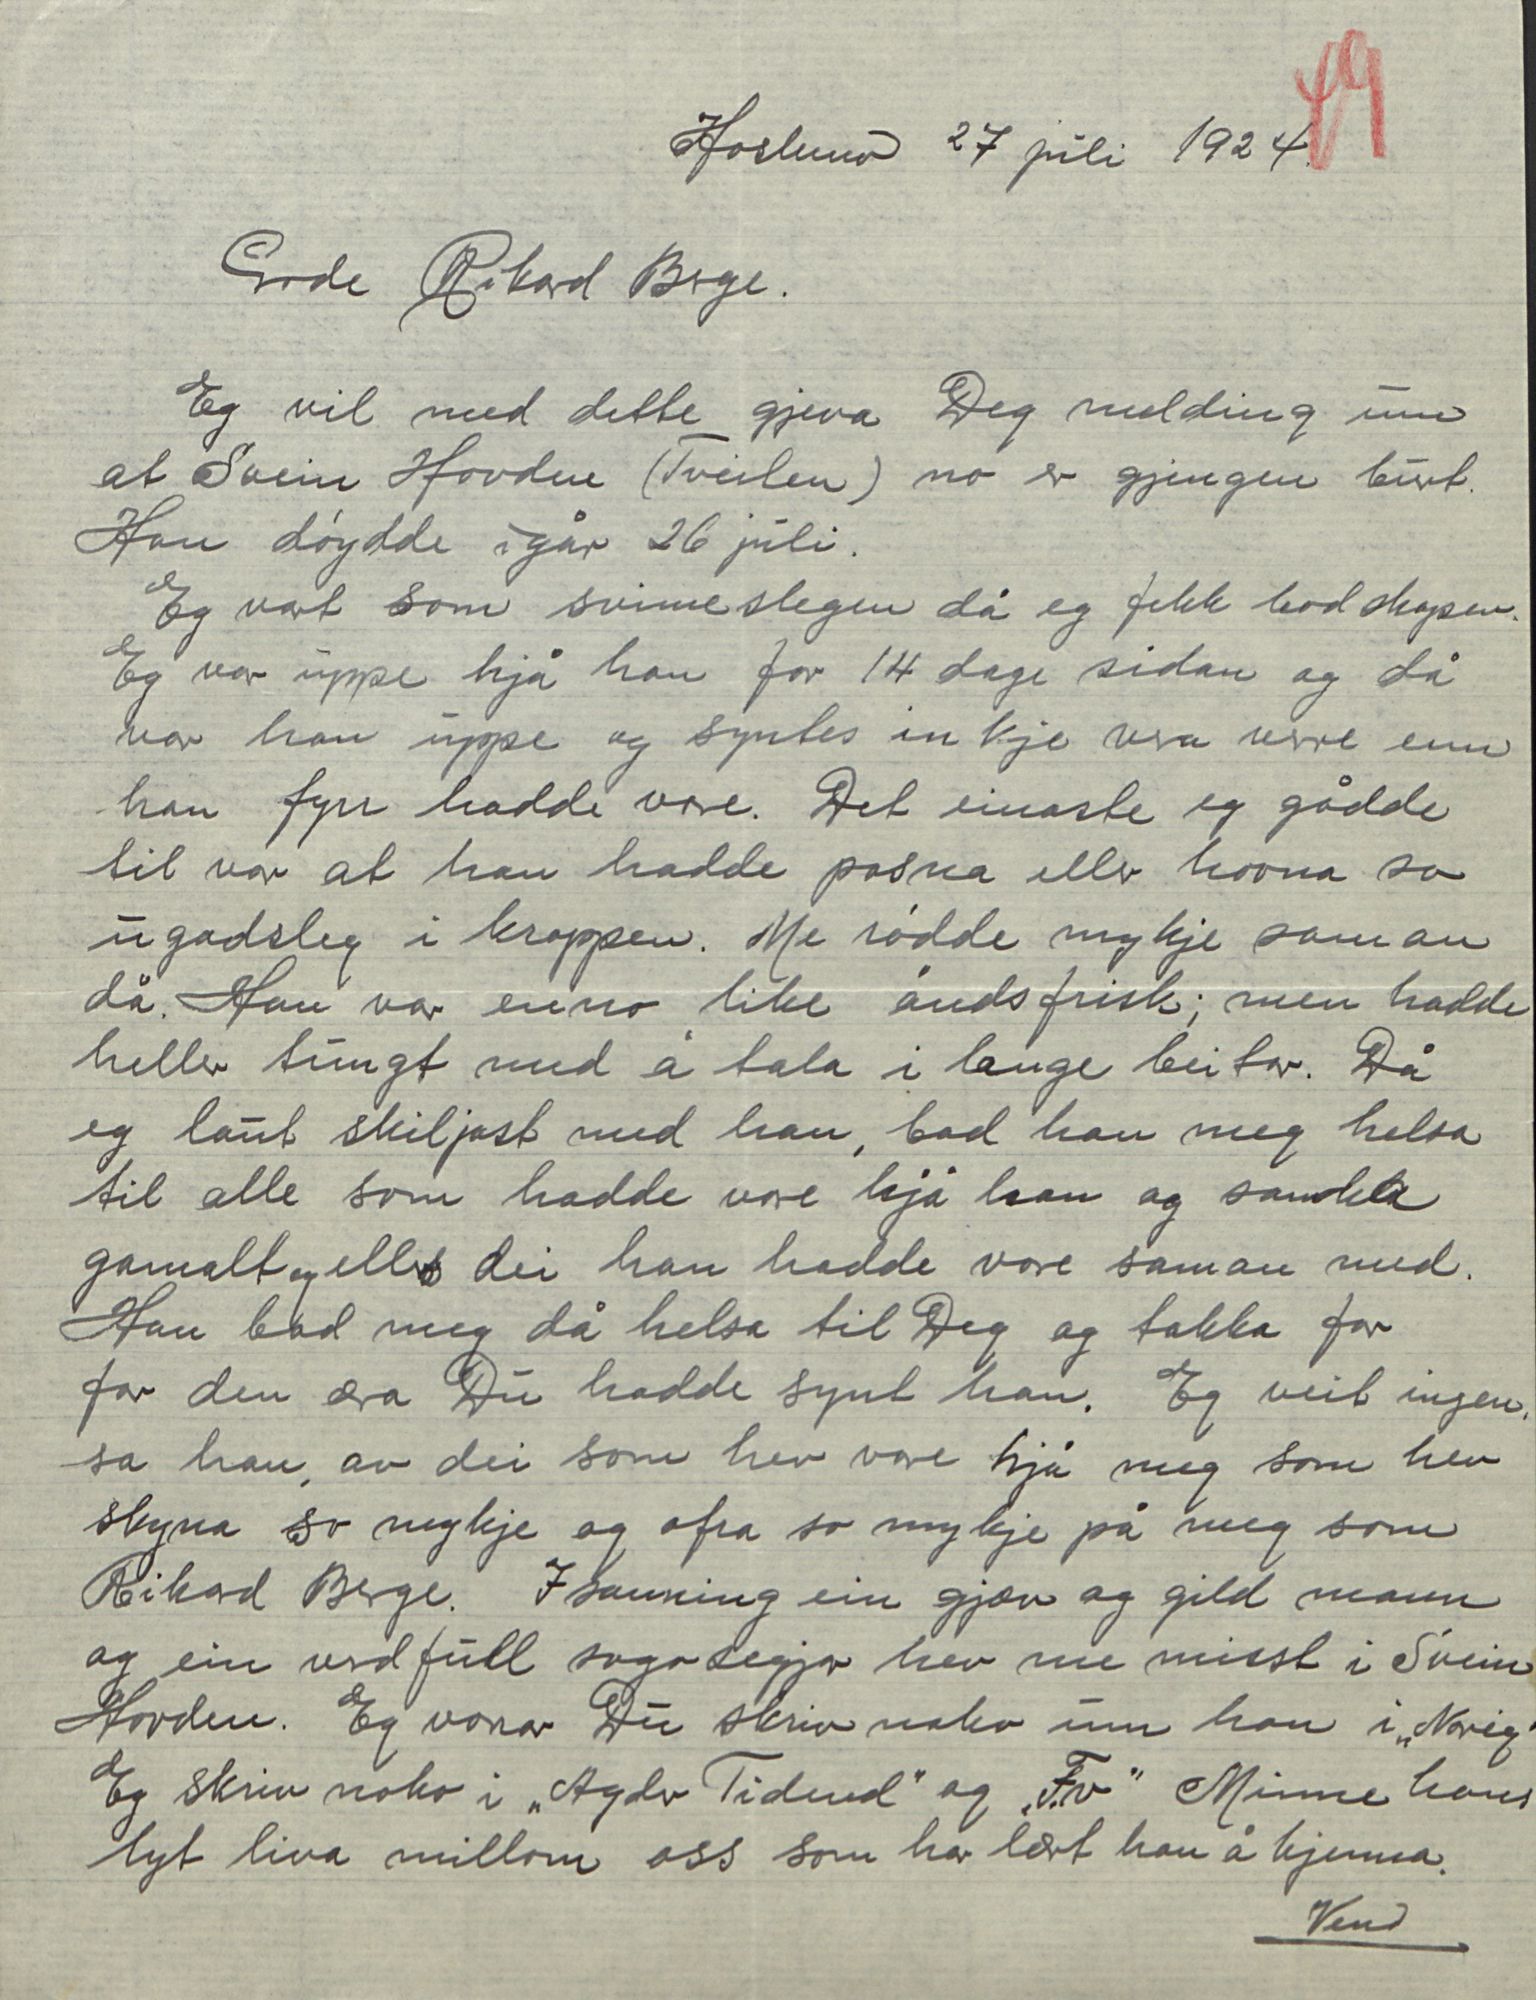 27 juli 1924.
Rikard Berge.
Eg vil med dette gjeva Deg melding um
at Svein Hovden (Tveiten) no er gjengen burt.
Han döydde igår 26 juli.
Eg vart som svimeslegen då eg fekk bodskapen.
Eg var uppe hjå han for 14 dage sidan og då
var han uppe og syntes inkje vera verre enn
han fyrr hadde vore. Det einaste eg gådde
til var at han hadde posna eller hovna so
ugadsleg i kroppen. Me rödde mykje saman
då. Han var enno like åndsfrisk; men hadde
heller tungt med å tala i lange beitar. Då
eg laut skiljast med han, bad han meg helsa
til alle som hadde vore hjå han og samkla
gamalt og elles dei han hadde vore saman med.
Han bad meg då helsa til Deg og takka for
for den æra Du hadde synt han. Eg veit ingen,
sa han, av dei som hev vore hjå meg som hev
skyna so mykje og ofra so mykje på meg som
Rikard Berge. I sanning ein gjæv og gild mann
og ein verdfull sogosegjar hev me misst i Svein
Hovden. Eg vonar Du skriv noko um han i „Norig"
Eg skriv noko i „Agder Tidend" og „F.v" Minne hans
lyt liva millom oss som har lært han å kjenna.
Vend